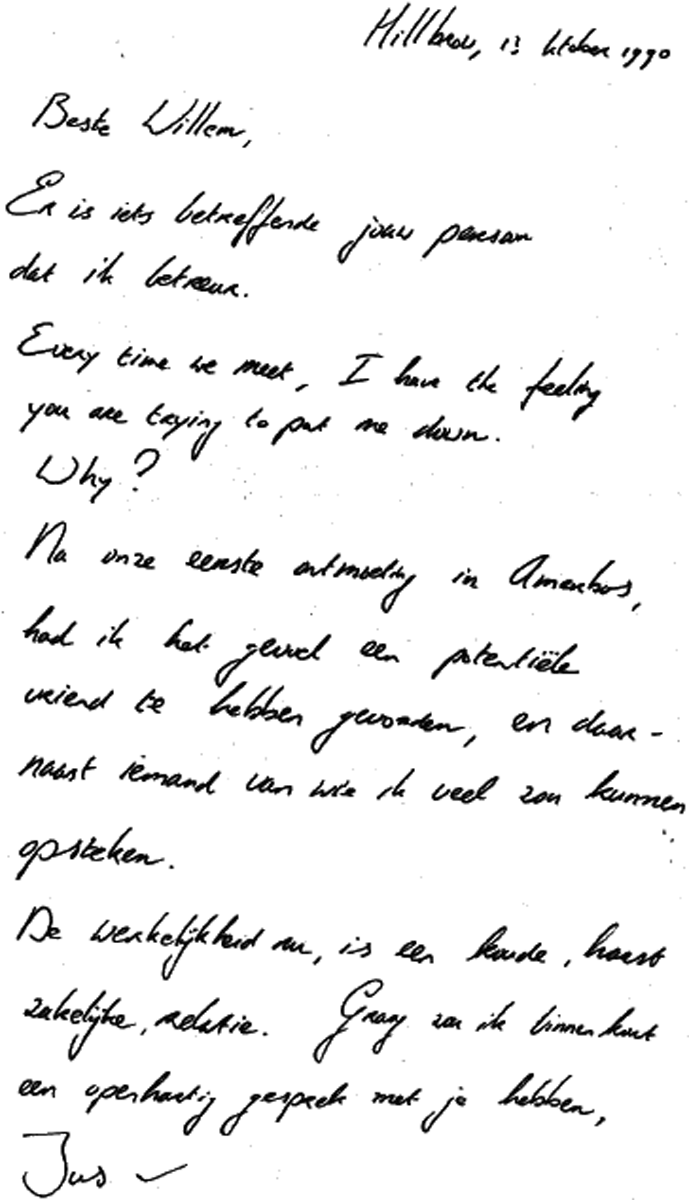 Hillbrow, 13 oktober 1990
Beste Willem,
Er is iets betreffende jouw persoon
dat ik betreur.
Every time we meet, I have the feeling
you are trying to put me down.
Why?
Na onze eerste ontmoeting in
had ik het gevoel een potentiële
vriend te hebben gevonden, en daar-
naast iemand van wie ik veel zou kunnen
opsteken.
De werkelijkheid nu, is een koude, haast
zakelijke, relatie. Graag zou ik binnenkort
een openhartig gesprek met je hebben,
Jus